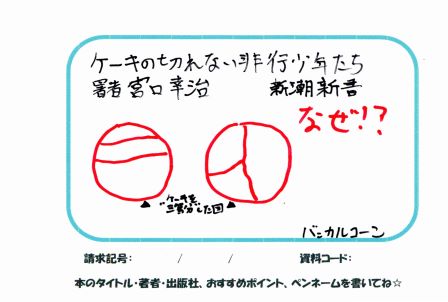 ケーキの切れない非行少年たち
署者 宮口幸治 新潮新書
なぜ!?
ケーキを
三等分した図
バニカルコーン
請求記号: / / 資料コード:
本のタイトル・著者・出版社、おすすめポイント、ペンネームを書いてね☆